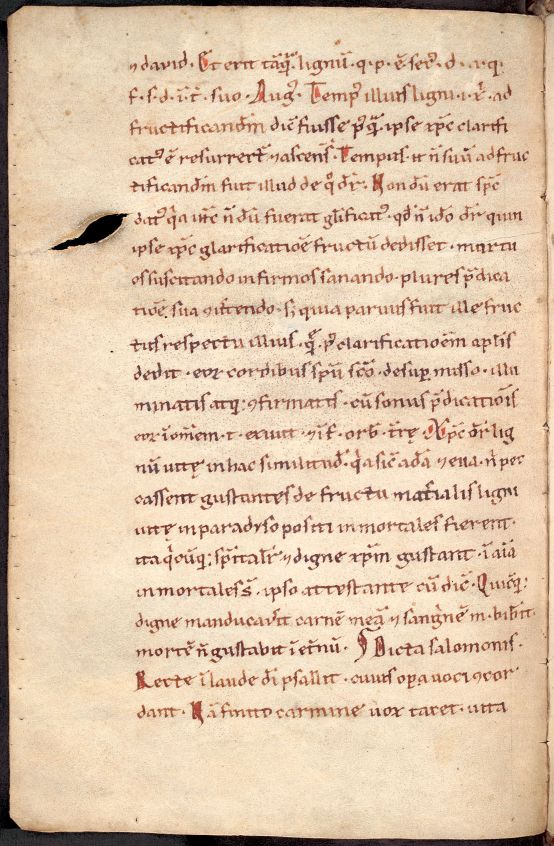 ⁊ david. Et erit tāq̄ lignū. q. p. ē sec̄. d. a. q.
f. s. d. ī. t̄. suo. Aug᷒. Temp᷒ illius ligni. i. x̄. ad
fructificandū dic̄ fuisse p᷒q̄ ipse xp̄c clarifi
cat᷒ ē resurrect̄ ⁊ ascens̄. Tempus. it n̄ suū ad fruc
tificandū fuit illud de q̊ dr̄. Nondū erat sp̄c
dat᷒ q̄a ih̄c n̄dū fuerat gl̄ificat᷒. qd̄ n̄ ido dr̄ quin
ipse xp̄c glarificatioē fructū dedisset. mortu
os suscitando infirmos sanando. plures p̄dica
tiōe sua ⁊ùtendo. sꝫ quia paruus fuit ille fruc
tus respectu illius. q̄ p᷒ clarificationēm apl̄is
dedit. eoꝝ cordibus sp̄u sc̄o. desuꝑ misso. illu
minatis atq; ⁊firmatis. cū sonus p̄dicatiōis
eoꝝ ī om̄em. t. exiuit. ⁊ i f. orb̄. t̄rę. Xp̄c dr̄ lig
nū uitę in hac similitud̄. q̄a sic ̄ adā ⁊ eua. n̄ pec
cassent gustantes de fructu mat̄ialis ligni
uitę in paradyso positi inmortales fierent.
ita q̄cūq; sp̄italr̄ ⁊ digne xp̄m gustant. ī aīa
inmortales s̄. ipso attestante cū dic̄. Quicq;
digne manducau̅it carnē meā ⁊ sanguinē m. bib̄it.
mortē n̄ gustabit ī et̄nū. ¶ Dicta salomonis.
Recte ī laude dī psallit. cuius oꝑa uoci ⁊cor
dant. Nā finito carmine uox tacet. uita